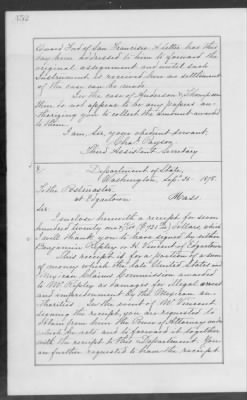 352
Edward Ford of San Francisco. A letter has this
day been addressed to him to forward the
original assignment and until such
Instrument is received here no settlement
of the case can be made.
In the case of Anderson & Thompson
there is not appear to be any papers au-
thorizing you to collect the amount awarded
to them.
I am, Sir, your obedient servant,
Chas. Payson
Third Assistant Secretary
Department of State,
Washington, Sept. 1878.
To the Postmaster
at Edgartown Mass.
Sir:
I enclose herewith a receipt for seven
hundred twenty one Dollars which
I will thank you to have signed be either
Benjamin Ripley or H. Vincent of Edgartown
This receipt is for a portion of a sum
of money which the late United States and
Mexican Claims Commission awarded
to Mr. Ripley as damages for illegal arrest
and imprisonment by the Mexican au-
thorities. In the event of Mr. Vincent
signing the receipt, you are requested to
obtain from him the Power of Attorney under
which he acts and to forward it together
with the receipt to this Department. You
are further requested to have the receipt